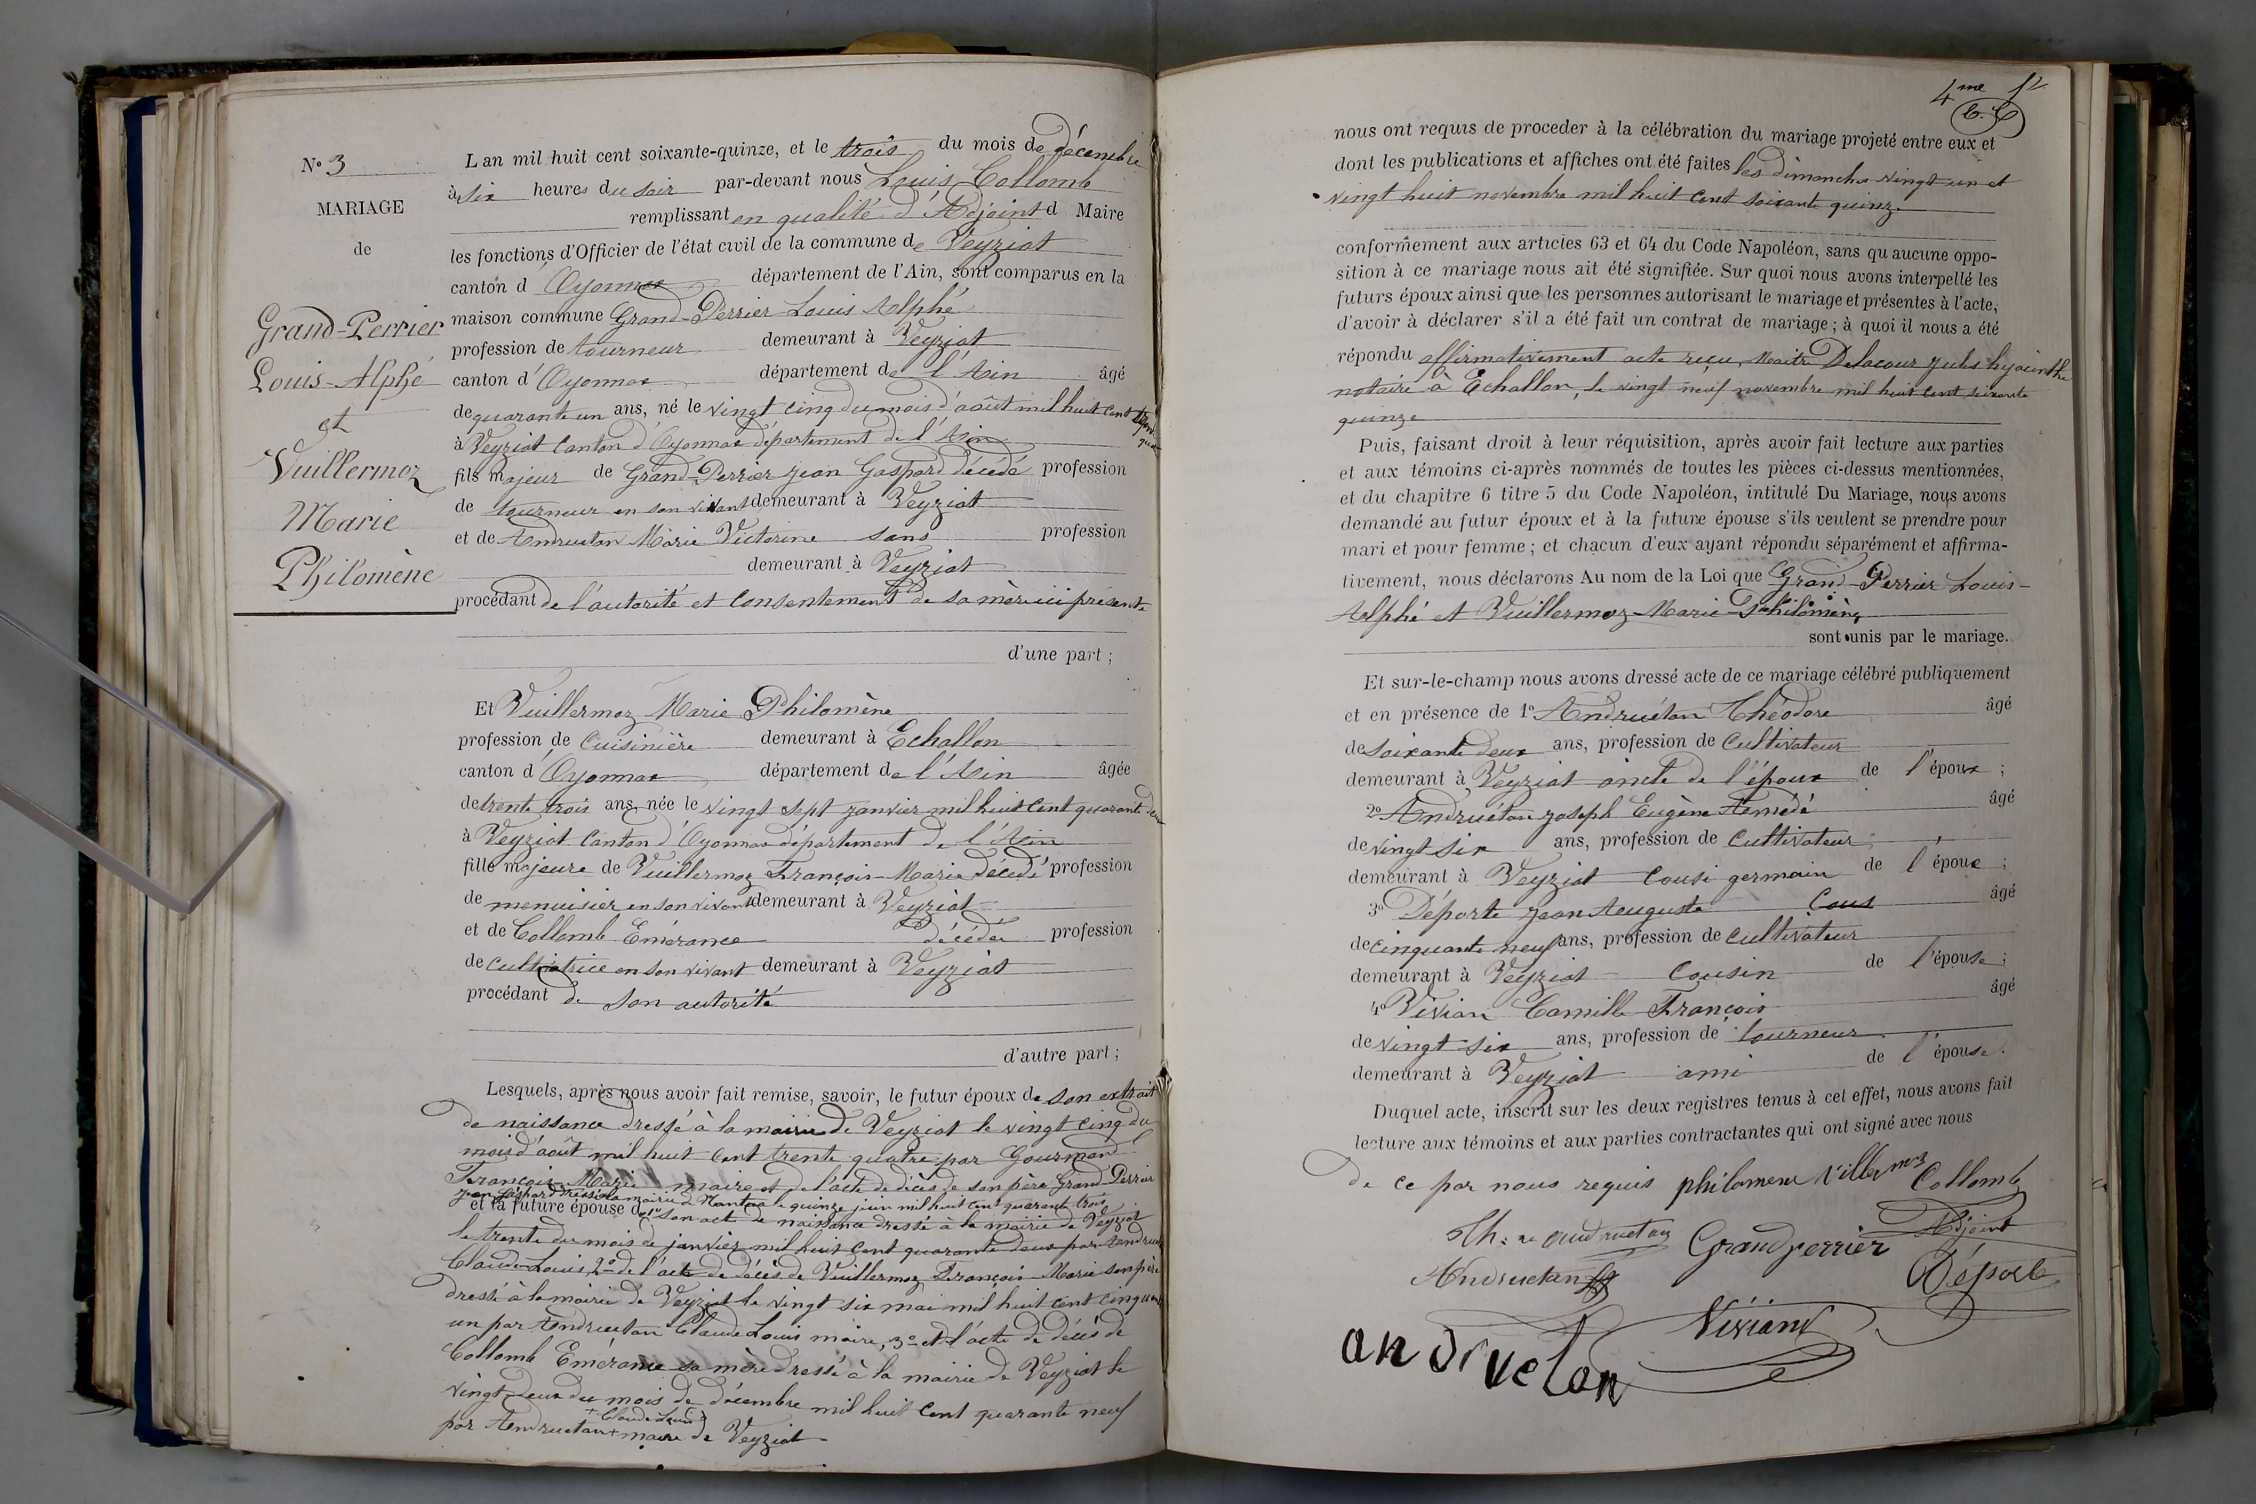 N° 3
MARIAGE
de
Grand-Perrier
Louis-Alphé
et
Vuillermoz
Marie
Philomène
L an mil huit cent soixante-quinze, et le trois du mois de décembre
à six heures du soir par-devant nous Louis Collomb
remplissant en qualité d'Adjoint d Maire
les fonctions d'Officier de l'état civil de la commune de Veyziat
canton d'Oyonnax département de l'Ain, sont comparus en la
maison commune Grand-Perrier Louis Alphé
profession de tourneur demeurant à Veyziat
canton d'Oyonnax département de l'Ain âgé
de quarante un ans, né le vingt cinq du mois d'août mil huit cent trente quatre
à Veyziat Canton d'Oyonnax département de l'Ain
fils majeur de Grand-Perrier jean Gaspard décédé profession
de tourneur en son vivant demeurant à Veyziat
et de Andruetan Marie Victorine sans profession
demeurant à Veyziat
procédant de l'autorité et consentement de sa mère ici présente
d'une part ;
Et Vuillermoz Marie Philomène
profession de Cuisinière demeurant à Echallon
canton d'Oyonnax département de l'Ain âgée
de trente trois ans, née le vingt sept janvier mil huit cent quarante deux
à Veyziat Canton d'Oyonnax département de l'Ain
fille majeure de Vuillermoz François-Marie décédé profession
de menuisier en son vivant demeurant à Veyziat
et de Collomb Emérance décédée profession
de cultivatrice en son vivant demeurant à Veyziat
procédant de son autorité
d'autre part ;
Lesquels, après nous avoir fait remise, savoir, le futur époux de son extrait
de naissance dressé à la mairie de Veyziat le vingt cinq du
mois d'août mil huit cent trente quatre par Gourmand
François-Marie maire et de l'acte de décès de son père Grand-Perrier
jean Gaspard dressé à la mairie de Nantua le quinze juin mil huit cent quarante trois
et la future épouse de 1° Son acte de naissance dressé à la mairie de Veyziat
le trente du mois de janvier mil huit cent quarante deux par Andruetan
Claude-Louis, 2° de l'acte de décès de Vuillermoz François-Marie son père
dressé à la mairie de Veyziat le vingt six mai mil huit cent cinquante
un par Andruetan Claude Louis maire, 3° et l'acte de décès de
Collomb Emérance sa mère dressé à la mairie de Veyziat le
vingt deux du mois de décembre mil huit cent quarante neuf
+ Claude Louis
par Andruetan + maire de Veyziat
4me 12
nous ont requis de proceder à la célébration du mariage projeté entre eux et
dont les publications et affiches ont été faites les dimanches vingt un et
vingt huit novembre mil huit cent soixante quinze
conformement aux articles 63 et 64 du Code Napoléon, sans qu aucune oppo-
sition à ce mariage nous ait été signifiée. Sur quoi nous avons interpellé les
futurs époux ainsi que les personnes autorisant le mariage et présentes à l'acte,
d'avoir à déclarer s'il a été fait un contrat de mariage ; à quoi il nous a été
répondu affirmativement acte reçu, Maitre Delacour jules hyacinthe
notaire à Echallon, le vingt neuf novembre mil huit cent soixante
quinze
Puis, faisant droit à leur réquisition, après avoir fait lecture aux parties
et aux témoins ci-après nommés de toutes les pièces ci-dessus mentionnées,
et du chapitre 6 titre 5 du Code Napoléon, intitulé Du Mariage, nous avons
demandé au futur époux et à la future épouse s'ils veulent se prendre pour
mari et pour femme ; et chacun d'eux ayant répondu séparément et affirma-
tivement, nous déclarons Au nom de la Loi que Grand-Perrier Louis-
Alphé et Vuillermoz-Marie-Philomène,
sont unis par le mariage.
Et sur-le-champ nous avons dressé acte de ce mariage célébré publiquement
et en présence de 1° Andruétan Théodore âgé
de soixante deux ans, profession de Cultivateur
demeurant à Veyziat oncle de l'époux de l'époux ;
2° Andruétan joseph Eugène Aemédé âgé
de vingt six ans, profession de Cultivateur
demeurant à Veyziat Cousi germain de l'époux ;
3° Déporte jean Auguste Cous âgé
de cinquante neuf ans, profession de cultivateur
demeurant à Veyziat Cousin de l'épouse ;
4° Vivian Camille François âgé
de vingt six ans, profession de tourneur
demeurant à Veyziat ami de l'épouse.
Duquel acte, inscrit sur les deux registres tenus à cet effet, nous avons fait
lecture aux témoins et aux parties contractantes qui ont signé avec nous
de ce par nous requis philomene Villermoz Collomb
Adjoint
Th: re andruetan Grandperrier
Andruetan Déporte
Viviand
andruetan